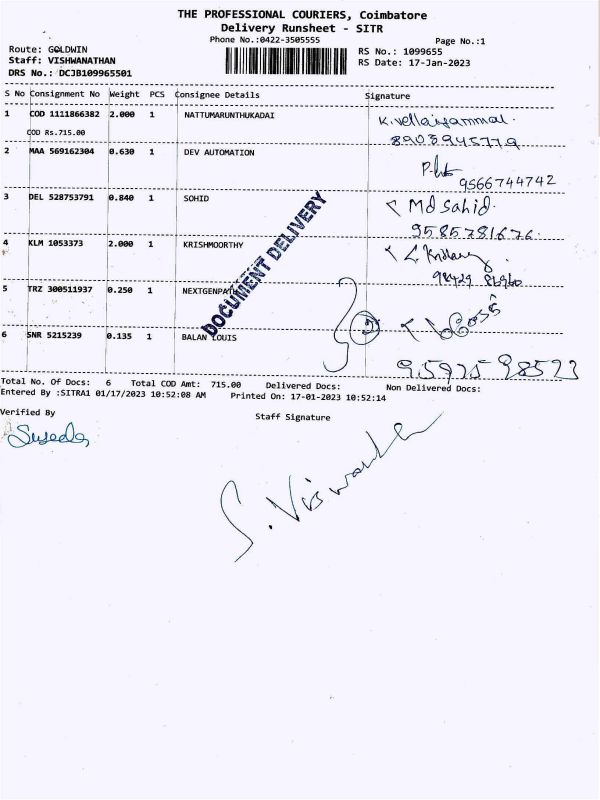 THE PROFESSIONAL COURIERS, Coimbatore
Delivery Runsheet - SITR
Phone No.:0422-3505555
Page No.:1
Route: GOLDWIN
RS No.: 1099655
Staff: VISHWANATHAN
RS Date: 17-Jan-2023
DRS No.: DCJB109965501
S No Consignment No Weight PCS Consignee Details Signature
1 COD 1111866382 2.000 1 NATTUMARUNTHUKADAI K.vellaiyammal.
COD Rs.715.00 8903945779
2 MAA 569162304 0.630 1 DEV AUTOMATION
9566744742
3 DEL 528753791 0.840 1 SOHID Md Sahid.
9585781676.
4 KLM 1053373 2.000 1 KRISHMOORTHY
98429 86960
DOCUMENT DELIVERY
5 TRZ 300511937 0.250 1 NEXTGENPATH
2
6 SNR 5215239 0.135 1 BALAN LOUIS
95975 98523
Total No. Of Docs: 6 Total COD Amt: 715.00 Delivered Docs: Non Delivered Docs:
Entered By :SITRA1 01/17/2023 10:52:08 AM Printed On: 17-01-2023 10:52:14
Verified By
Staff Signature